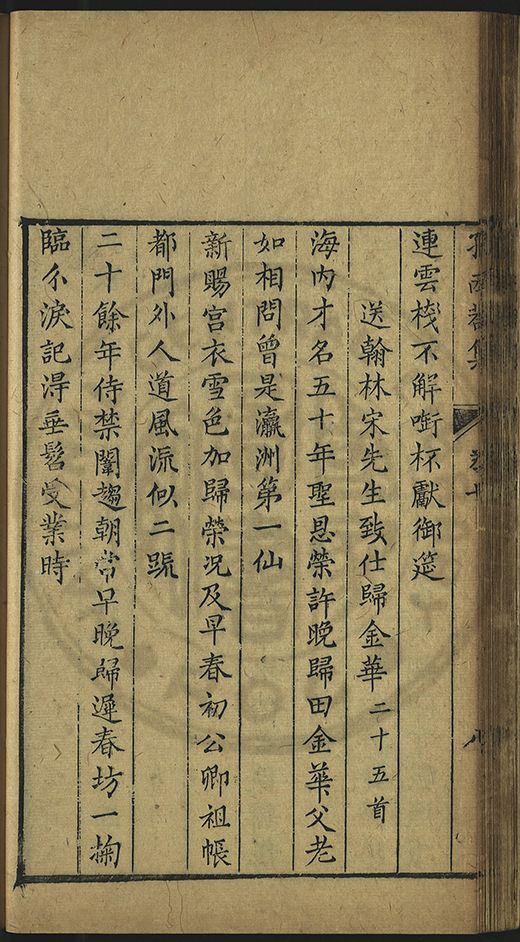 孫西菴集
卷十
八
連雲棧不解啣杯獻御筵
送翰林宋先生致仕歸金華二十五首
海内才名五十年聖恩榮許晚歸田金華父老
如相問曾是瀛洲第一仙
新賜宫衣雪色加歸榮况及早春初公卿祖帳
都門外人道風流似二䟽
二十餘年侍禁闈趨朝常早晚歸遲春坊一掬
臨分淚記淂垂髫受業時